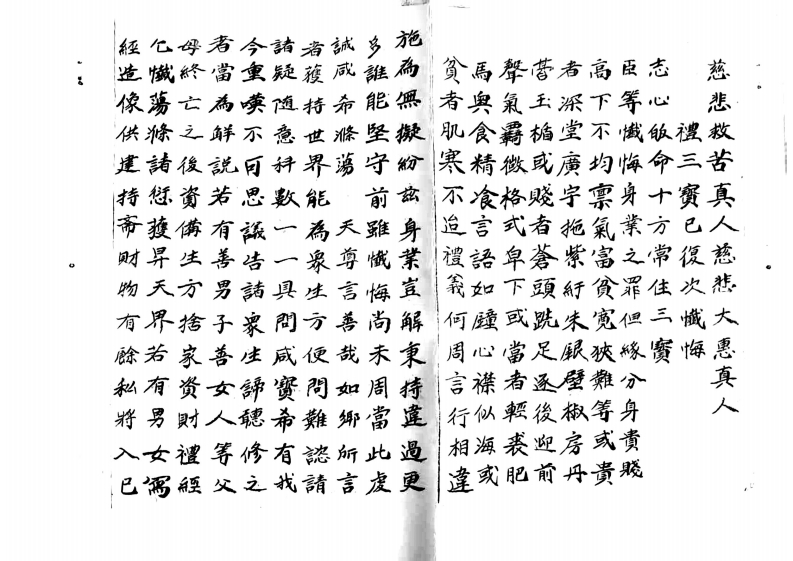 慈悲救苦真人慈悲大惠真人
禮三寳已復次懴悔
志心皈命十方常住三寳
臣等懴悔身業之罪但緣分身貴賤
高下不均禀氣富貧寛狹難等或貴
者深堂廣宇拖紫紆朱銀壁椒房丹
或賤者蒼頭跣足逐後迎前
聲氣覇微格式卑下或當者輕裘肥
馬與食精飡言語如鐘心襟似海或
貧者肌寒不迨禮義何周言行相違
施為無擬紛兹身業豈解秉持違過更
多誰能堅守前雖懴悔尚未周當此虔
誠咸希滌蕩 天尊言善哉如鄉所言
者獲持世界能為衆生方便問難諮請
諸疑随意科數一一具問咸寳希有我
今重嘆不可思議告諸衆生諦聽修之
者當為解說若有善男子善女人等父
母終亡之後資備生方捨家資財禮經
乞懴蕩滌諸愆獲昇天界若有男女寫
經造像供建持斋財物有餘私将入已